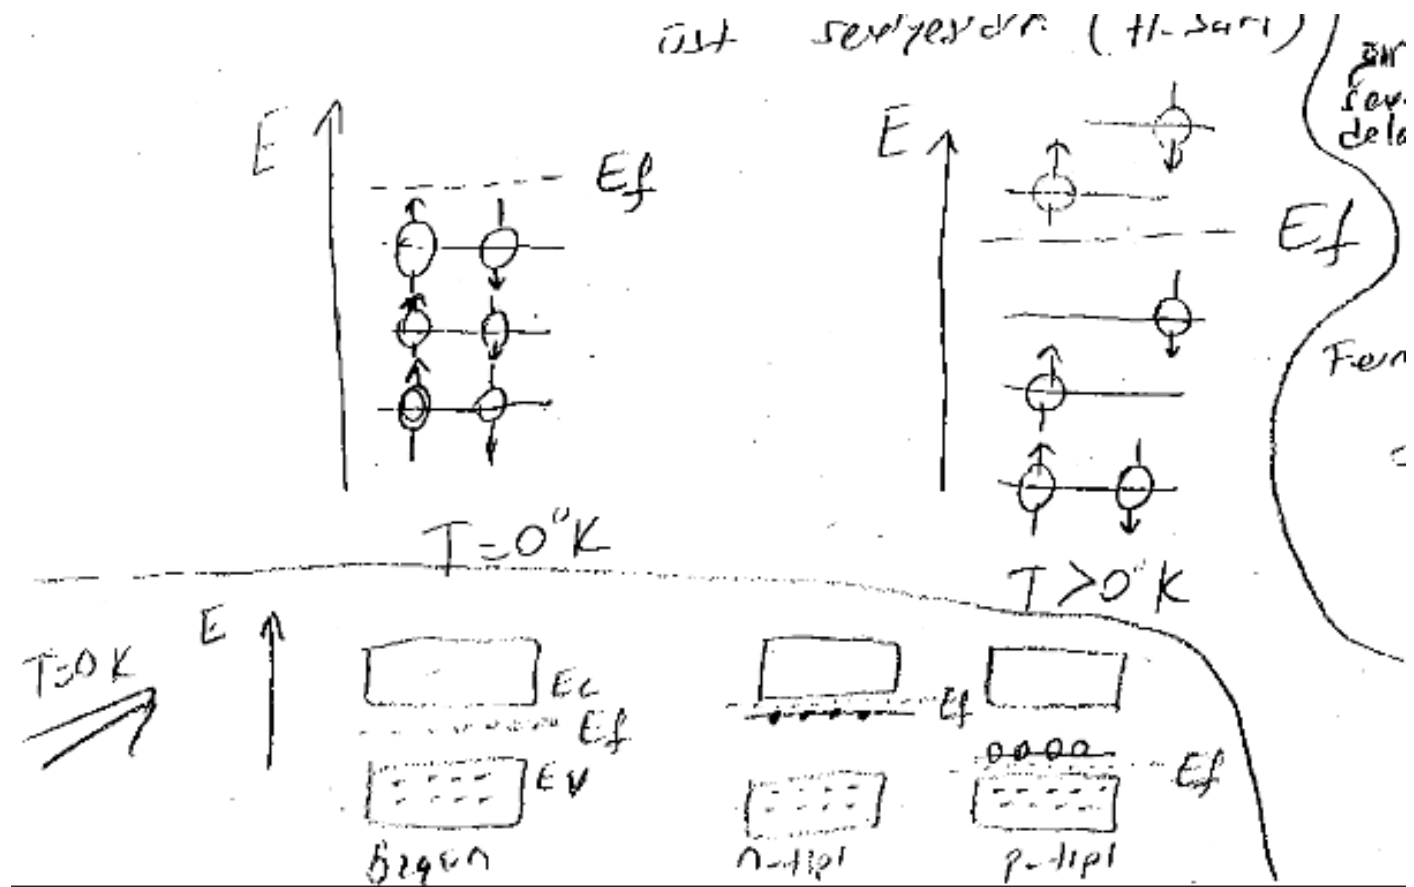 üst seviyesidir. (
E
Ef
E
Ef
T=0°K
T>0°K
T=0K
E
Ec
Ef
Ev
Ef
Ef
özgün
n-tipi
p-tipi